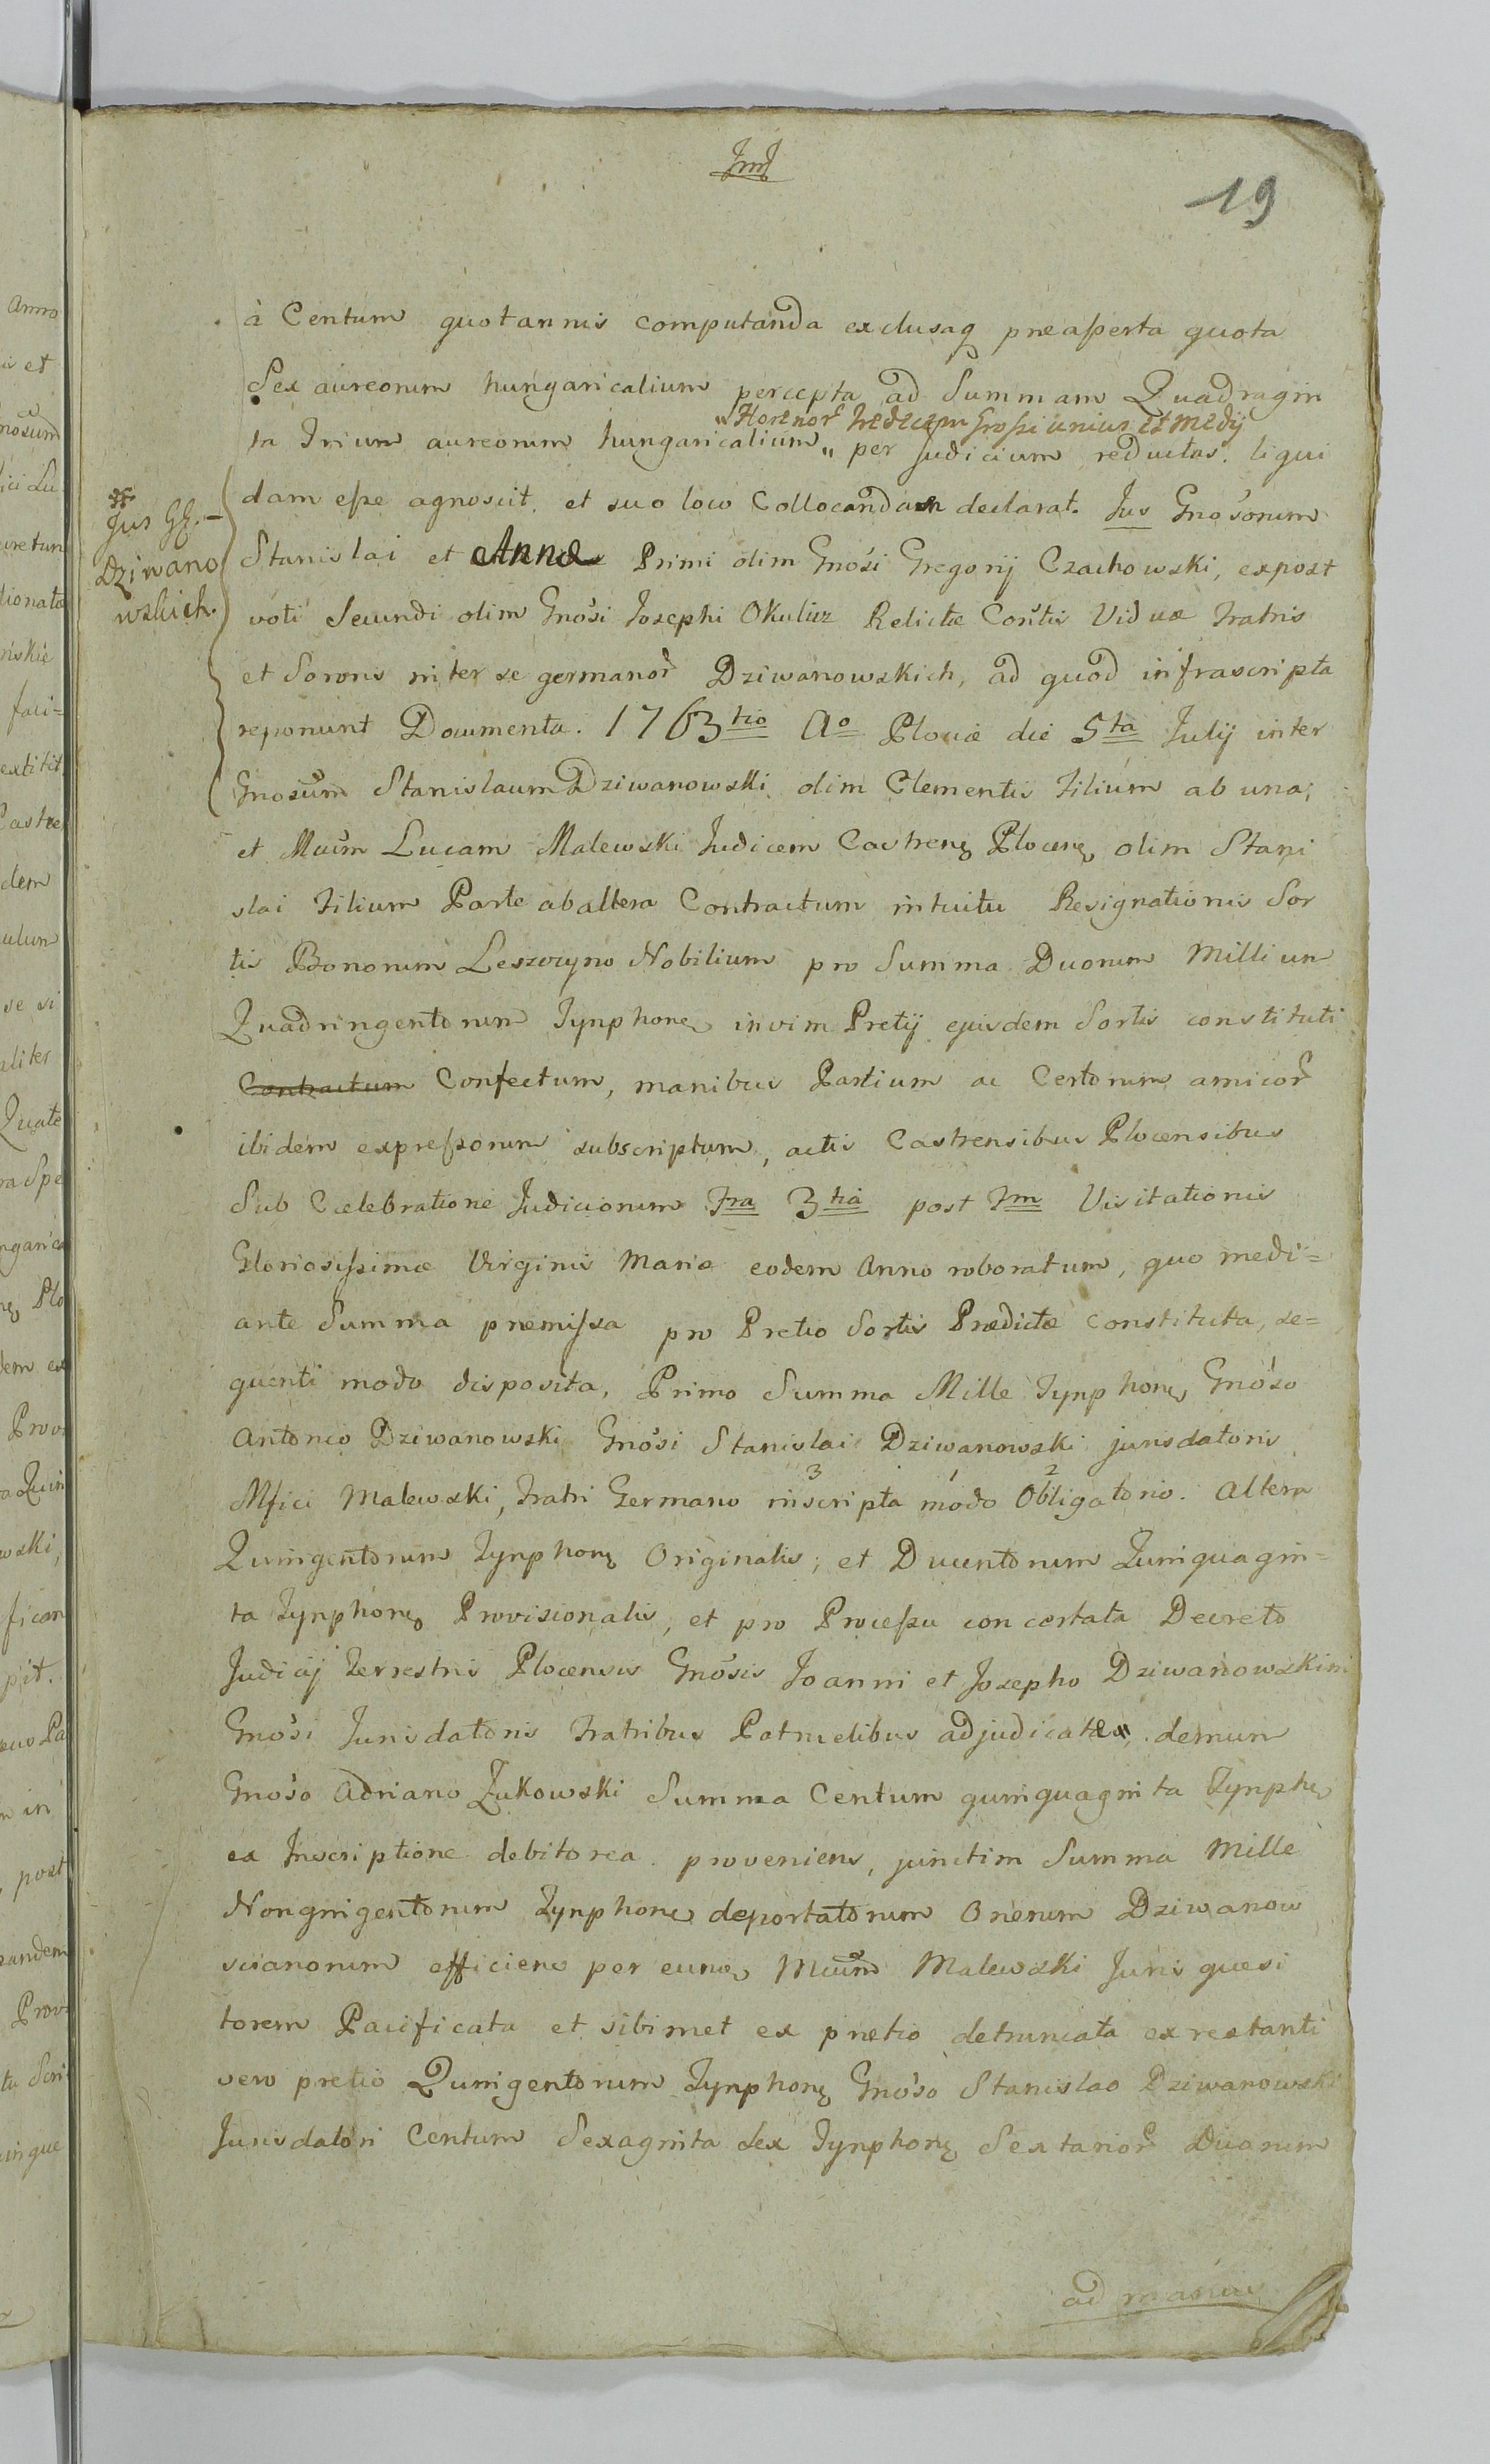 19
à Centum quotannis computanda exclusaq praeaſserta quota
Sex aureorum hungaricalium percepta ad Summam Quadragin
" Florenor tredecem Groſsi unius et medij
ta Trium aureorum hungaricalium " per Judicium reductas. liqui
dam eſse agnoscit, et suo loco Collocandam declarat. Jus Gnosorum
* Jus GG. Dziwanowskich.
Stanislai et Annæ Primi olim Gnosi Gregorij Czachowski, expost
voti Secundi olim Gnosi Josephi Okulicz Relictæ Contis Viduæ Fratris
et Sororis inter se germanor Dziwanowskich, ad quod infrascripta
reponunt Documenta. 1763tio Ao Plociæ die 5ta Julij inter
Gnosum Stanislaum Dziwanowski olim Clementis Filium ab una;
et Mcum Lucam Malewski Judicem Castrens Plocens olim Stani
slai Filium Parte ab altera Contractum intuitu Resignationis Sor
tis Bonorum Leszczyno Nobilium pro Summa Duorum Millium
Quadringentorum Tynphone invim Pretij ejusdem Sortis constituti
Contractum Confectum, manibus Partium ac Certorum amicor
ibidem expreſsorum subscriptum, actis Castrensibus Plocensibus
Sub Cælebratione Judiciorum Fra 3tia post Fm Visitationis
Gloriosiſsimæ Virginis Mariæ eodem Anno roboratum, quo medi=
ante Summa præmiſsa pro Pretio Sortis Prædictæ constituta, se=
quenti modo disposita, Primo Summa Mille Tynphone Gnoso
Antonio Dziwanowski Gnosi Stanislai Dziwanowski jurisdatoris
Mfici Malewski, Fratri Germano 3 inscripta 1 modo 2 Obligatorio. Altera
Quingentorum Tynphone Originalis; et Ducentorum Quinquagin=
ta Tynphone Provisionalis, et pro Proceſsu concertata Decreto
Judicij Terrestris Plocensis Gnosis Joanni et Josepho Dziwanowskim
Gnosi Jurisdatoris Fratribus Patruelibus adjudicatæ, demum
Gnoso Adriano Żukowski Summa Centum quinquaginta Tynphe
ex Inscriptione debitorea proveniens, junctim Summa Mille
Nongingentorum Tynphone deportatorum Onerum Dziwanow
scianorum efficiens per eunde Mcum Malewski Juris quesi
torem Pacificata et sibimet ex prætio detruncata ex restanti
vero pretio Quingentorum Tynphone Gnoso Stanislao Dziwanowski
Jurisdatori Centum Sexaginta Sex Tynphone Sextarior Duorum
ad manus